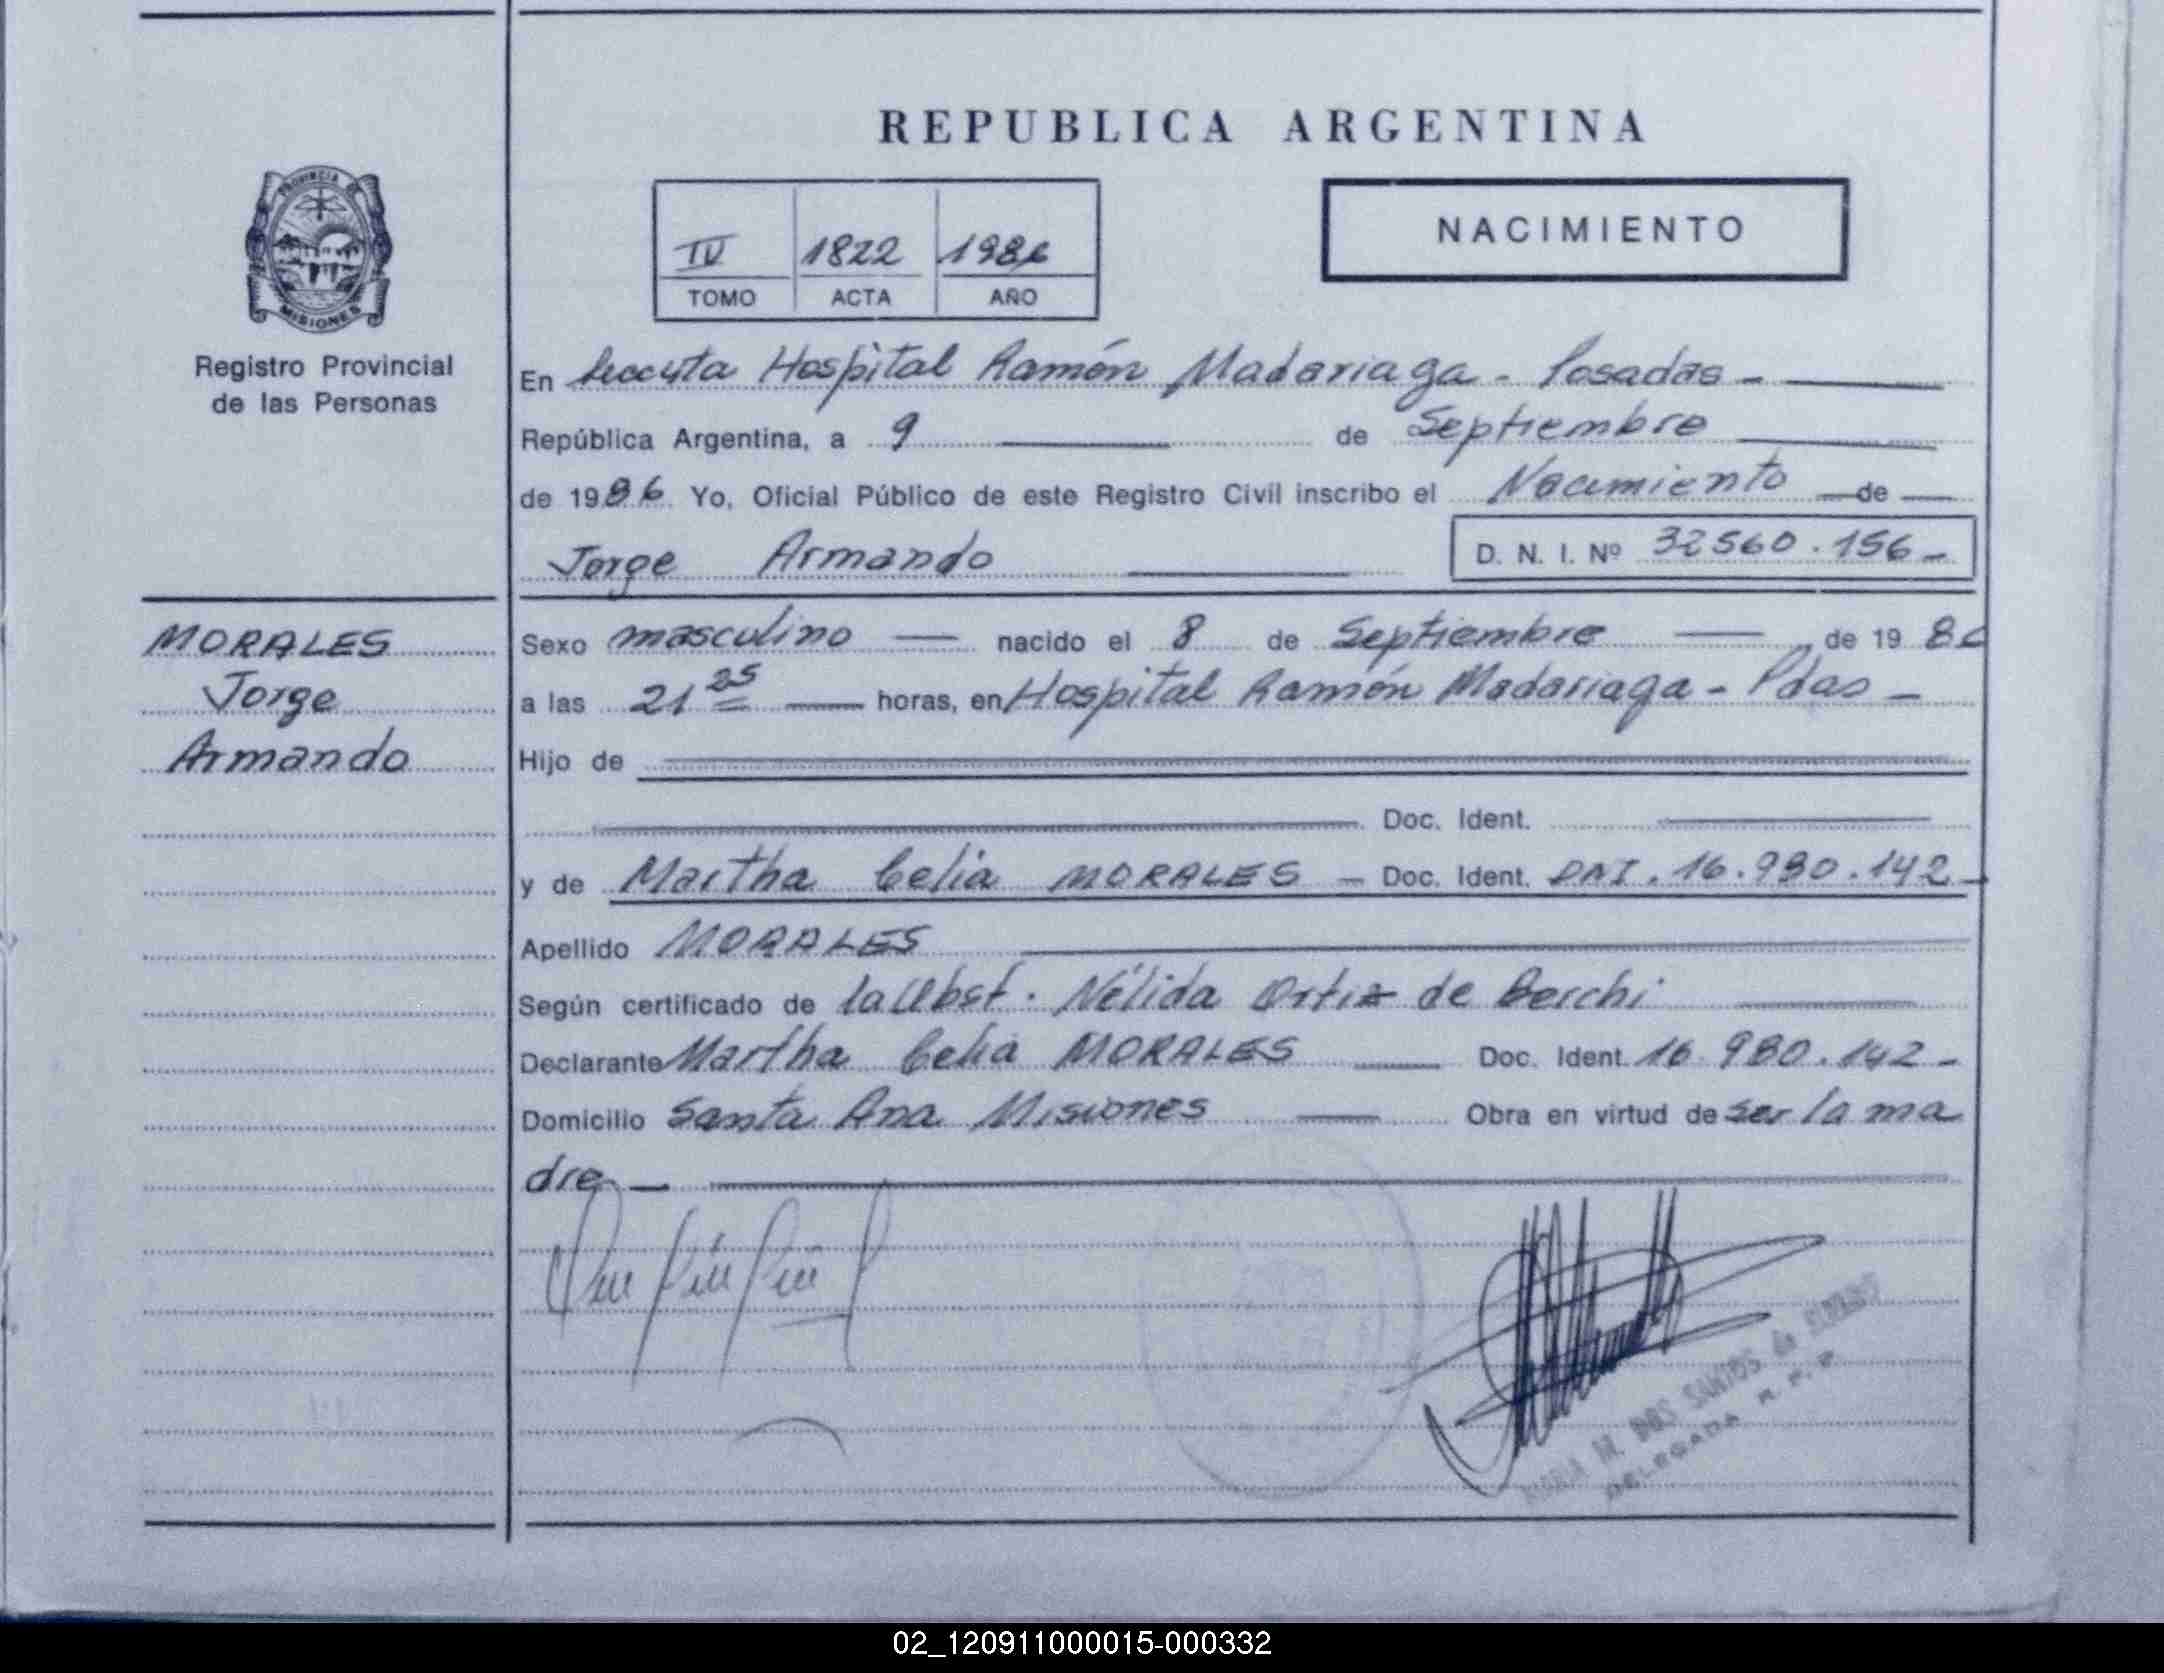 REPUBLICA ARGENTINA
PROVINCIA DE
MISIONES
Registro Provincial
de las Personas
IV 1822 1986
TOMO ACTA AÑO
NACIMIENTO
En Hospital Ramón Madariaga - Posadas -
República Argentina, a 9 de Septiembre
de 1986 Yo, Oficial Público de este Registro Civil inscribo el Nacimiento de
Jorge Armando D. N. I. Nº 32560.156-
MORALES
Jorge
Armando
Sexo masculino nacido el 8 de Septiembre de 1986
a las 21 25 horas, en Hospital Ramón Madariaga - Pdas -
Hijo de
Doc. Ident.
y de Martha Celia MORALES - Doc. Ident. DNI. 16.980.142-
Apellido MORALES
Según certificado de la Obst. Nélida Ortiz de Berchi
Declarante Martha Celia MORALES Doc. Ident. 16.980.142-
Domicilio Santa Ana Misiones Obra en virtud de ser la ma
dre
M. DOS SANTOS de
DELEGADA R. P. P.
02_120911000015-000332